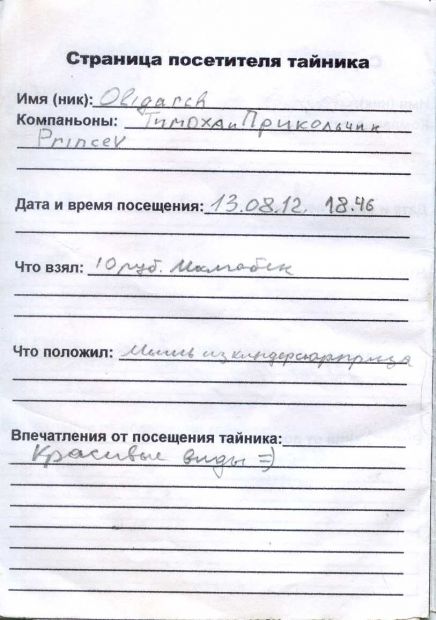 Страница посетителя тайника
Имя (ник): Oligarch
Компаньоны: Тимоха и Прикольчик
Princev
Дата и время посещения: 13.08.12. 18.46
Что взял: 10 руб. Малгобек
Что положил: Мышь из киндерсюрприза
Впечатления от посещения тайника:
Красивые виды =)